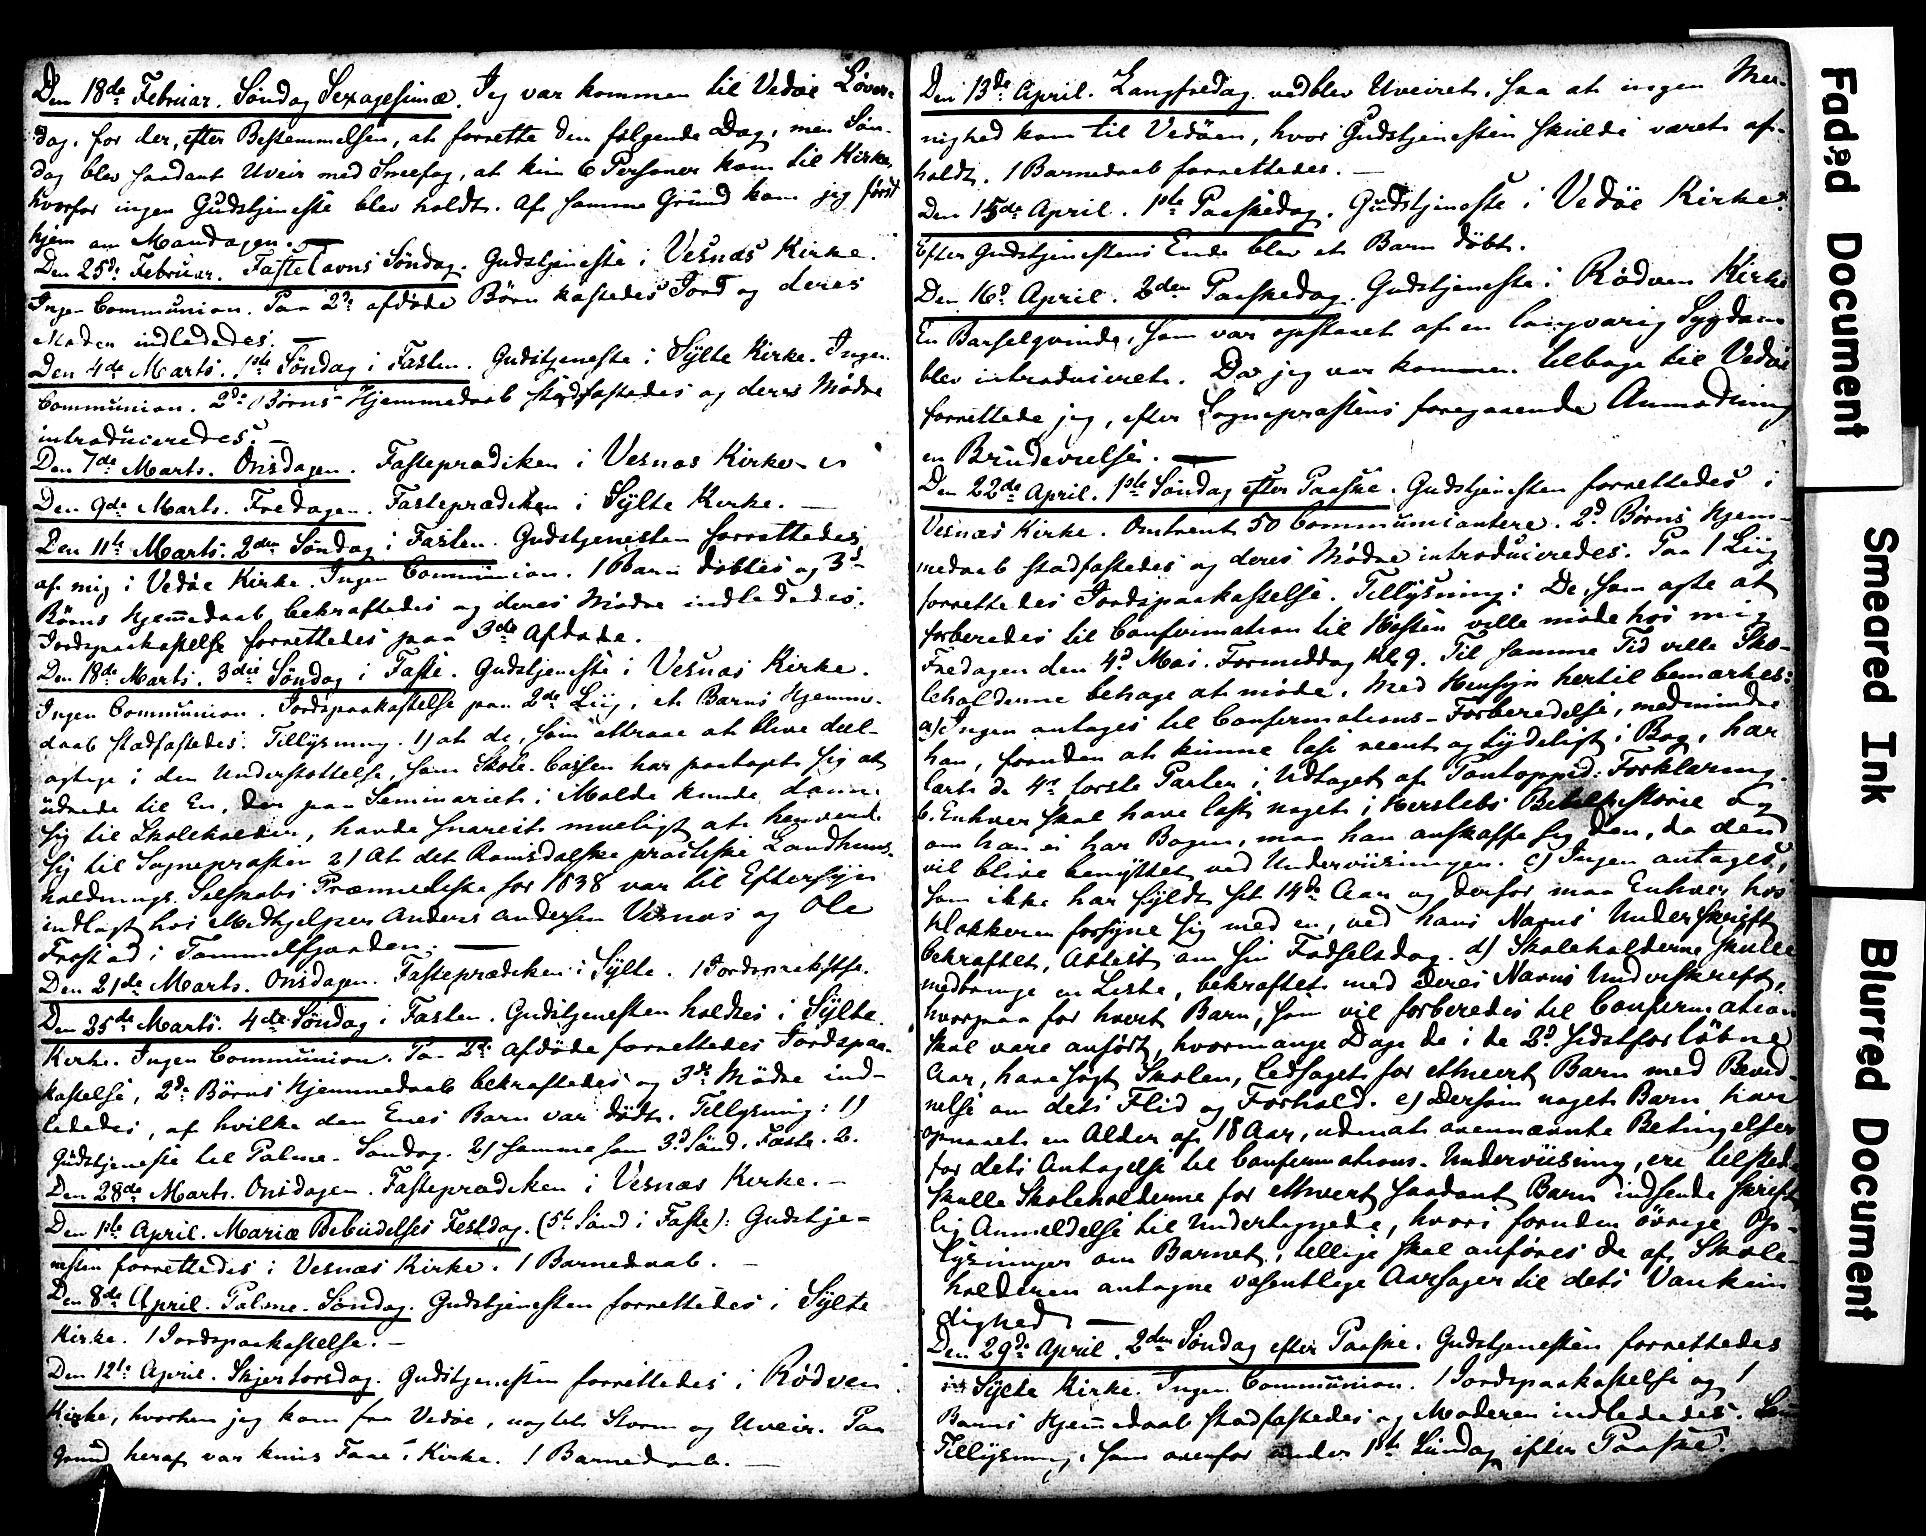 Den 18de Februar. Søndag Sexagesimæ. Jeg var kommen til Vedøe Løver-
dag, for der, efter Bestemmelsen, at forrette den følgende Dag, men Søn-
dag blev saadant Uveir med Sneefog, at kun 6 Personer kom til Kirke,
hvorfor ingen Gudstjeneste blev holdt. Af samme Grund kom jeg først
hjem om Mandagen. —
Den 25de Februar. Fastelavns Søndag. Gudstjeneste i Vesnæs Kirke.
Ingen Communion. Paa 2de afdøde Børn kastedes Jord og deres
Mødre indlededes. —
Den 4de Marts. 1ste Søndag i Fasten. Gudstjeneste i Sylte Kirke. Ingen
Communion. 2de Børns Hjemmedaab stadfæstedes og deres Mødre
introduceredes. —
Den 7de Marts. Onsdagen. Fasteprædiken i Vesnæs Kirke.
Den 9de Marts. Fredagen. Fasteprædiken i Sylte Kirke. —
Den 11te Marts. 2den Søndag i Fasten. Gudstjenesten forrettedes
af mig i Vedøe Kirke. Ingen Communion. 1 Barn døbtes og 3de
Børns Hjemmedaab bekræftedes og deres Mødre indlededes.
Jordspaakastelse forrettedes paa 3de Afdøde.
Den 18de Marts. 3die Søndag i Faste. Gudstjeneste i Vesnæs Kirke.
Ingen Communion. Jordspaakastelse paa 2de Liig, et Barns Hjemme-
daab stadfæstedes. Tillysning. 1) at de, som attraae at blive deel-
agtige i den Understøttelse, som Skole-Cassen har paataget sig at
udrede til En, der paa Seminariet i Molde kunde danne
sig til Skoleholder, havde snareste mueligt at henvende
sig til Sognepræsten 2) At det Romsdalske practiske Landhuus-
holdnings-Selskabs Præmieliste for 1838 var til Eftersyn
indlagt hos Medhjelper Anders Andersen Vesnæs og Ole
Frostad i Tommelfjorden. —
Den 21de Marts. Onsdagen. Fasteprædiken i Sylte. 1 Jordspaakstse.
Den 25de Marts. 4de Søndag i Fasten. Gudstjenesten holdtes i Sylte
Kirke. Ingen Communion. Paa 2de Afdøde forrettedes Jordspaa-
kastelse, 2de Børns Hjemmedaab bekræftedes og 3de Mødre ind-
lededes, af hvilke den Enes Barn var dødt. Tillysning: 1)
Gudstjeneste til Palme-Søndag. 2) samme som 3d Sønd. i Faste. 2.
Den 28de Marts. Onsdagen. Fasteprædiken i Vesnæs Kirke. —
Den 1ste April. Mariæ Bebudelses Festdag. (5te Sønd i Faste): Gudstje-
nesten forrettedes i Vesnæs Kirke. 1 Barnedaab. —
Den 8de April. Palme-Søndag. Gudstjenesten forrettedes i Sylte
Kirke. 1 Jordspaakastelse. —
Den 12te April. Skjertorsdag. Gudstjenesten forrettedes i Rødven
Kirke, hvorhen jeg kom fra Vedøe, uagtet Storm og Uveir. Paa
Grund heraf var kuns Faae i Kirke. 1 Barnedaab. —
Den 13de April. Langfredag vedblev Uveiret, saa at ingen Me-
nighed kom til Vedøen, hvor Gudstjenesten skulde været af-
holdt. 1 Barnedaab forrettedes. —
Den 15de April. 1ste Paaskedag. Gudstjeneste i Vedøe Kirke.
Efter Gudstjenestens Ende blev et Barn døbt.
Den 16de April. 2den Paaskedag. Gudstjeneste i Rødven Kirke
En Barselqvinde, som var opstanet af en langvarig Sygdom
blev introduceret. Da jeg var kommen tilbage til Vedøe
forrettede jeg, efter Sognepræstens foregaaende Anmodning
en Brudevielse. —
Den 22de April. 1ste Søndag efter Paaske. Gudstjenesten forrettedes i
Vesnæs Kirke. Omtrent 50 Communicantere. 2de Børns Hjem-
medaab stadfæstedes og deres Mødre introduceredes. Paa 1 Liig
forrettedes Jordspaakastelse. Tillysning: De, som agte at
forberedes til Confirmation til Høsten ville møde hos mig
Fredagen den 4de Mai. Formiddag Kl. 9. Til samme Tid ville Sko-
leholderne behage at møde. Med Hensyn hertil bemærkes:
a) Ingen antages til Confirmations-Forberedelse, medmindre
han, foruden at kunne læse reent og tydeligt i Bog, har
lært de 4re første Parter i Udtoget af Pontoppid: Forklaring.
b. Enhver skal have læst noget i Herslebs Bibelhistorie og
om han ei har Bogen, maa han anskaffe sig den, da den
vil blive benyttet ved Underviisningen. c) Ingen antages,
som ikke har fyldt sit 14de Aar og derfor maa Enhver hos
Klokkeren forsyne sig med en, ved hans Navns Underskrift
bekræftet, Attest om sin Fødselsdag. d) Skoleholderne skulle
medbringe en Liste, bekræftet med deres Navns Underskrift,
hvorpaa for hvert Barn, som vil forberedes til Confirmation
skal være anført, hvormange Dage de i de 2de sidstforløbne
Aar, have søgt Skolen, ledsaget for ethvert Barn med Bevid-
nelse om dets Flid og Forhold. e) Dersom noget Barn har
opnaaet en Alder af 18 Aar, uden at ovennævnte Betingelser
for dets Antagelse til Confirmations-Underviisning, ere tilstede
skulle Skoleholderne for ethvert saadant Barn indsende skrift
lig Anmeldelse til Undertegnede, hvori foruden øvrige Op-
lysninger om Barnet, tillige skal anføres de af Skole-
holderen antagne væsentlige Aarsager til dets Vankun
dighed. —
Den 29de April. 2den Søndag efter Paaske. Gudstjenesten forrettedes
i Sylte Kirke. Ingen Communion. 1 Jordspaakastelse og 1
Barns Hjemmedaab stadfæstedes og Moderen indlededes.
Tillysning, som ovenfor under 1ste Søndag efter Paaske.
Faded Document
Smeared Ink
Blurred Document